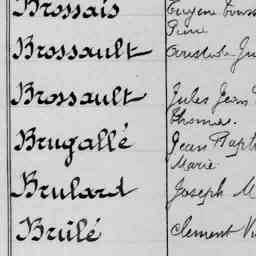 Brossais Eugène
Pierre
Brossault
Brossault Jules Jean
Thomas.
Brugallé Jean Bapt
Marie
Brulard Joseph M
Brûlé Clément Vi